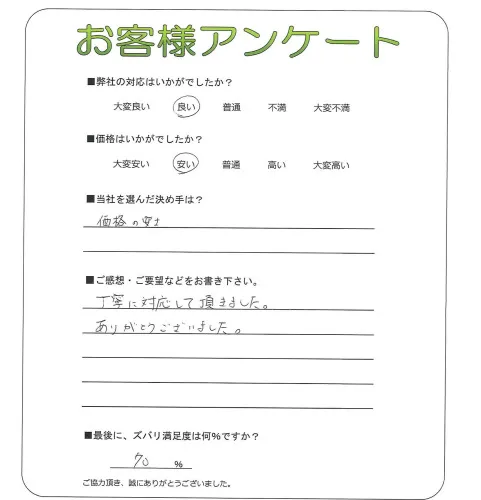 お客様アンケート
■弊社の対応はいかがでしたか？
大変良い 良い 普通 不満 大変不満
■価格はいかがでしたか？
大変安い 安い 普通 高い 大変高い
■当社を選んだ決め手は？
価格の安さ
■ご感想・ご要望などをお書き下さい。
丁寧に対応して頂きました。
ありがとうございました。
■最後に、ズバリ満足度は何％ですか？
70 ％
ご協力頂き、誠にありがとうございました。